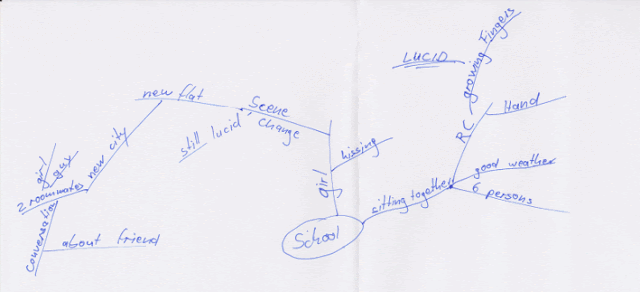 School
sitting together
6 persons
good weather
RC
Hand
growing Fingers
LUCID
girl
kissing
Scene change
still lucid
new flat
new city
2 roommates
girl
guy
conversation
about friend